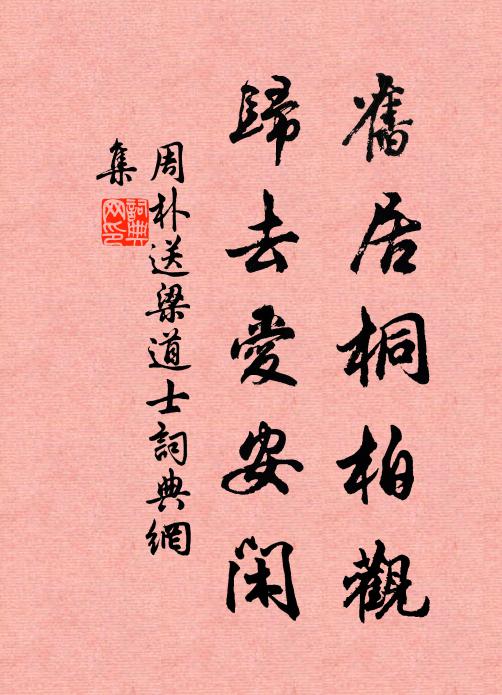 舊居桐柏觀
歸去愛安閑
周朴送梁道士詞典網
集
詞典
网印